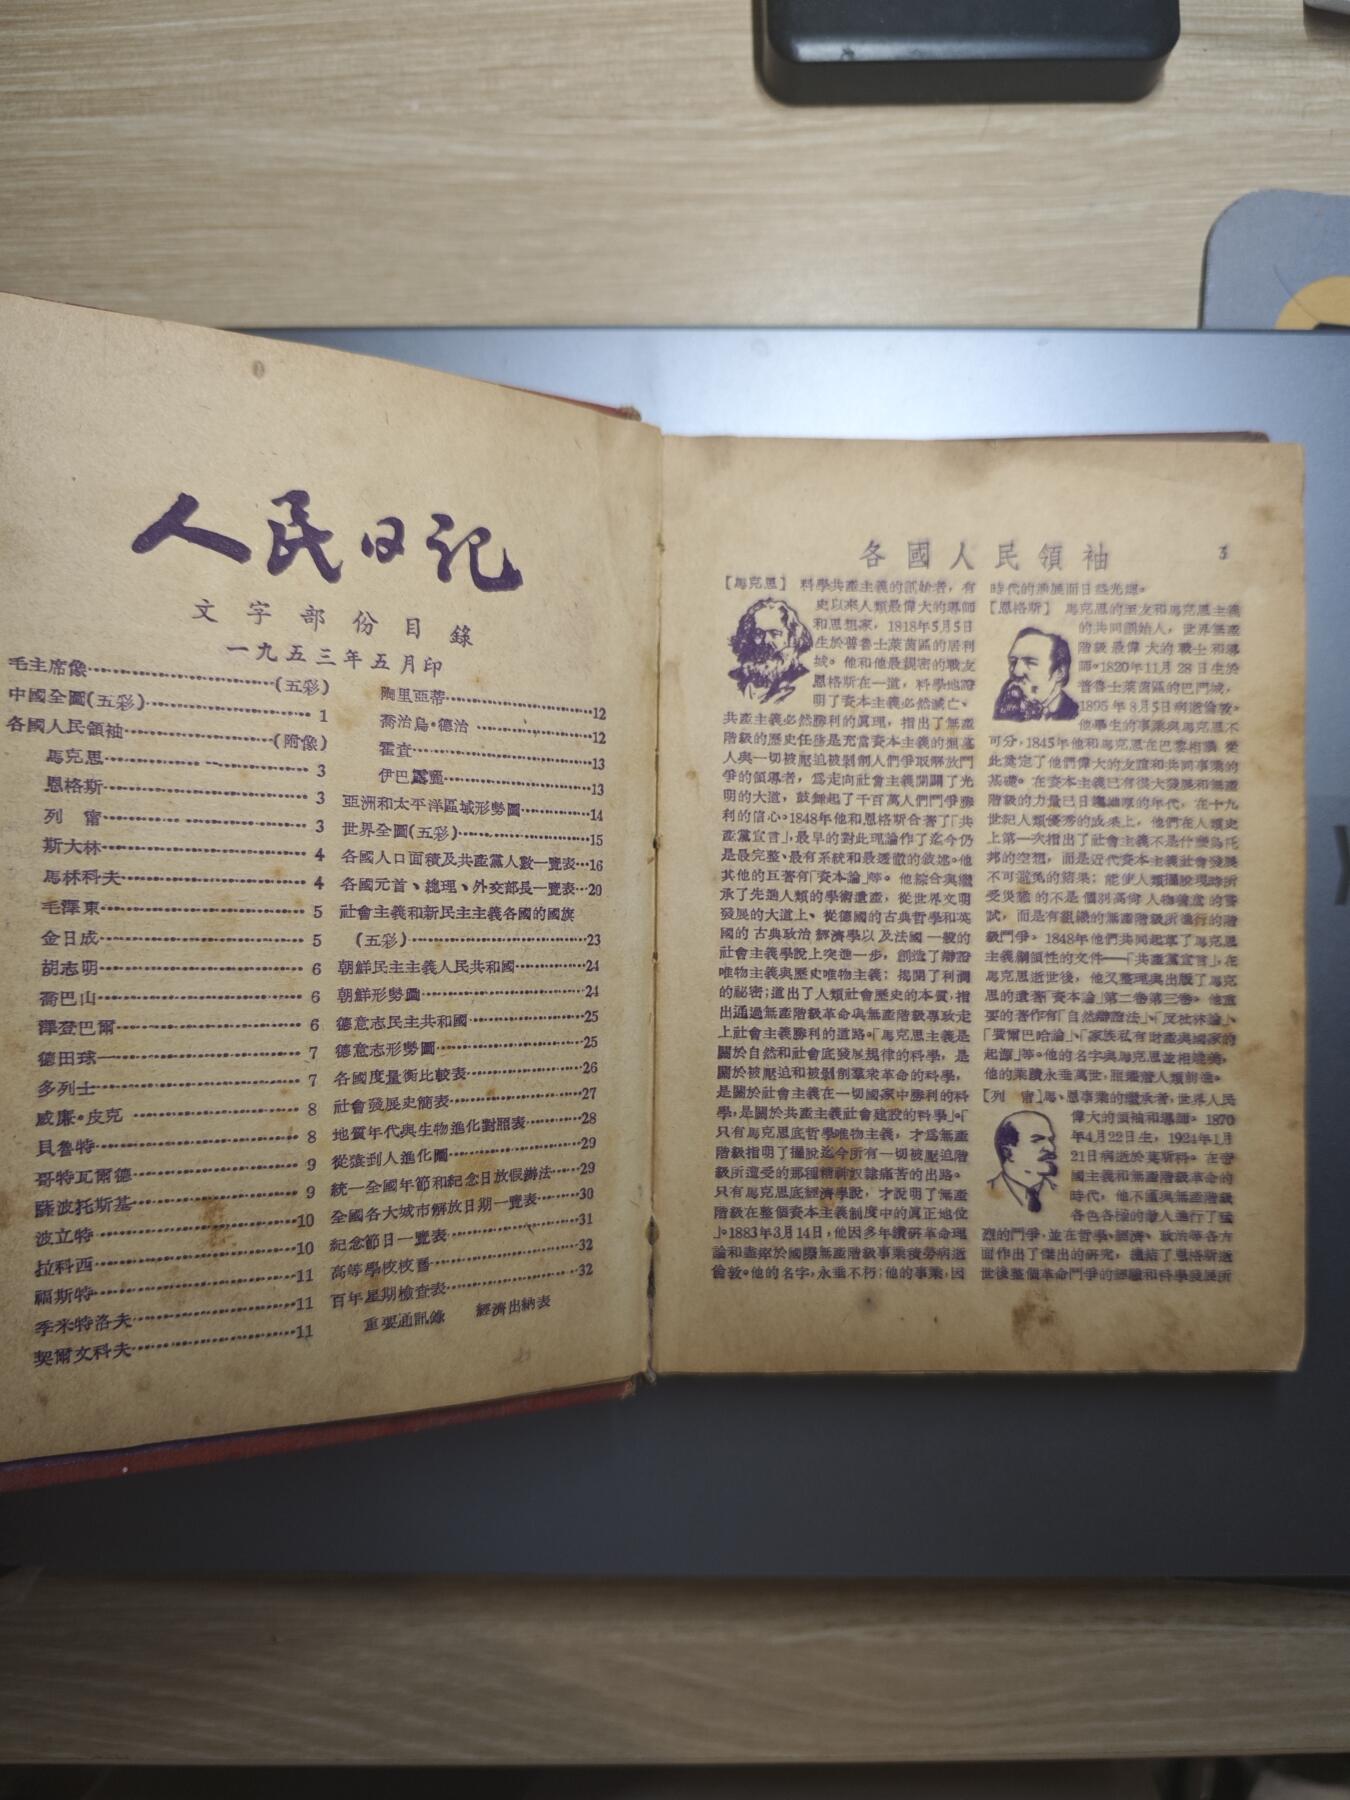 人民日記
文字部份目錄
一九五三年五月印
毛主席像……(五彩)
中國全圖(五彩)……1
各國人民領袖……(附像)
馬克思……3
恩格斯……3
列　甯……3
斯大林……4
馬林科夫……4
毛澤東……5
金日成……5
胡志明……6
喬巴山……6
澤登巴爾……6
德田球一……7
多列士……7
威廉·皮克……8
貝魯特……8
哥特瓦爾德……9
薩波托斯基……9
波立特……10
拉科西……10
福斯特……11
季米特洛夫……11
契爾文科夫……11
陶里亞蒂……12
喬治烏·德治……12
霍查……13
伊巴露麗……13
亞洲和太平洋區域形勢圖……14
世界全圖(五彩)……15
各國人口面積及共產黨人數一覽表…16
各國元首、總理、外交部長一覽表…20
社會主義和新民主主義各國的國旗
(五彩)……23
朝鮮民主主義人民共和國……24
朝鮮形勢圖……24
德意志民主共和國……25
德意志形勢圖……25
各國度量衡比較表……26
社會發展史簡表……27
地質年代與生物進化對照表……28
從猿到人進化圖……29
統一全國年節和紀念日放假辦法……29
全國各大城市解放日期一覽表……30
紀念節日一覽表……31
高等學校校曆……32
百年星期檢查表……32
重要通訊錄　經濟出納表
各國人民領袖
3
[馬克思] 科學共產主義的創始者，有
史以來人類最偉大的導師
和思想家，1818年5月5日
生於普魯士萊茵區的居利
城。他和他最親密的戰友
恩格斯在一道，科學地證
明了資本主義必然滅亡、
共產主義必然勝利的眞理，指出了無產
階級的歷史任務是充當資本主義的掘墓
人與一切被壓迫被剝削人們爭取解放鬥
爭的領導者，爲走向社會主義開闢了光
明的大道，鼓舞起了千百萬人們鬥爭勝
利的信心。1848年他和恩格斯合著了「共
產黨宣言」，最早的對此理論作了迄今仍
是最完整、最有系統和最透徹的敘述。他
其他的巨著有「資本論」等。他綜合與繼
承了先進人類的學術遺產，從世界文明
發展的大道上、從德國的古典哲學和英
國的古典政治經濟學以及法國一般的
社會主義學說上突進一步，創造了辯證
唯物主義與歷史唯物主義；揭開了利潤
的秘密；道出了人類社會歷史的本質，指
出通過無產階級革命與無產階級專政走
上社會主義勝利的道路。「馬克思主義是
關於自然和社會底發展規律的科學，是
關於被壓迫和被剝削羣衆革命的科學，
是關於社會主義在一切國家中勝利的科
學，是關於共產主義社會建設的科學」。「
只有馬克思底哲學唯物主義，才爲無產
階級指明了擺脫迄今所有一切被壓迫階
級所遭受的那種精神奴隸痛苦的出路。
只有馬克思底經濟學說，才說明了無產
階級在整個資本主義制度中的眞正地位
」。1883年3月14日，他因多年鑽研革命理
論和盡瘁於國際無產階級事業積勞病逝
倫敦。他的名字，永垂不朽；他的事業，因
時代的漸展而日益光耀。
[恩格斯] 馬克思的至友和馬克思主義
的共同創始人，世界無產
階級最偉大的戰士和導
師。1820年11月28日生於
普魯士萊茵區的巴門城，
1895年8月5日病逝倫敦。
他畢生的事業與馬克思不
可分，1845年他和馬克思在巴黎相識 從
此奠定了他們偉大的友誼和共同事業的
基礎。在資本主義已有很大發展和無產
階級的力量已日趨雄厚的年代，在十九
世紀人類優秀的成果上，他們在人類史
上第一次指出了社會主義不是什麼烏托
邦的空想，而是近代資本主義社會發展
不可避免的結果；能使人類擺脫現時所
受災難的不是個別高尚人物善意的嘗
試，而是有組織的無產階級所進行的階
級鬥爭。1848年他們共同起草了馬克思
主義綱領性的文件——「共產黨宣言」，在
馬克思逝世後，他又整理與出版了馬克
思的遺著「資本論」第二卷第三卷。他重
要的著作有「自然辯證法」、「反杜林論」、
「費爾巴哈論」、「家族私有財產與國家的
起源」等。他的名字與馬克思並相媲美，
他的業績永垂萬世，照耀着人類前進。
[列　甯] 馬、恩事業的繼承者，世界人民
偉大的領袖和導師。1870
年4月22日生，1924年1月
21日病逝於莫斯科。在帝
國主義和無產階級革命的
時代，他不僅與無產階級
各色各樣的敵人進行了猛
烈的鬥爭，並在哲學、經濟、政治等各方
面作出了傑出的研究，總結了恩格斯逝
世後整個革命鬥爭的經驗和科學發展所